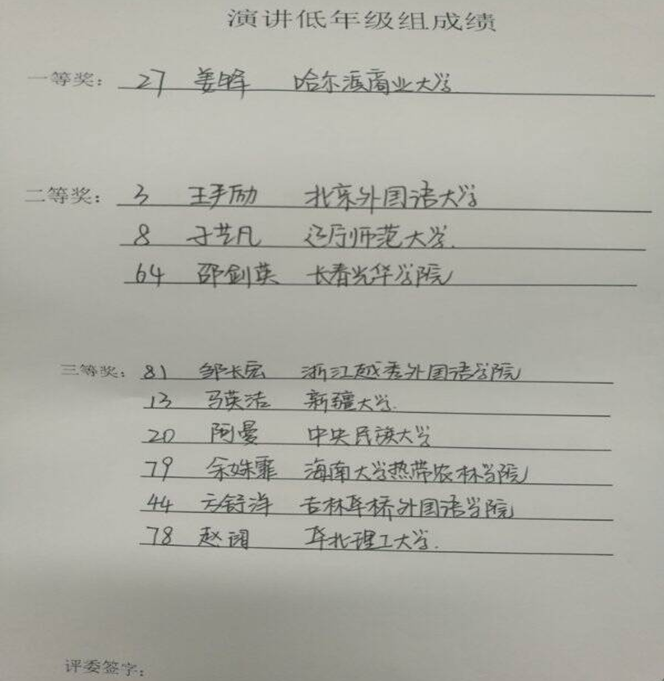 演讲低年级组成绩
一等奖: 27 姜晖 哈尔滨商业大学
二等奖: 3 王予励 北京外国语大学
8 于艺凡 辽宁师范大学.
64 邵剑英 长春光华学院
三等奖: 81 邹长宏 浙江越秀外国语学院
13 马英洁 新疆大学.
20 阿曼 中央民族大学
79 余姝霏 海南大学热带农林学院
44 方舒洋 吉林华桥外国语学院
78 赵 华北理工大学.
评委签字: